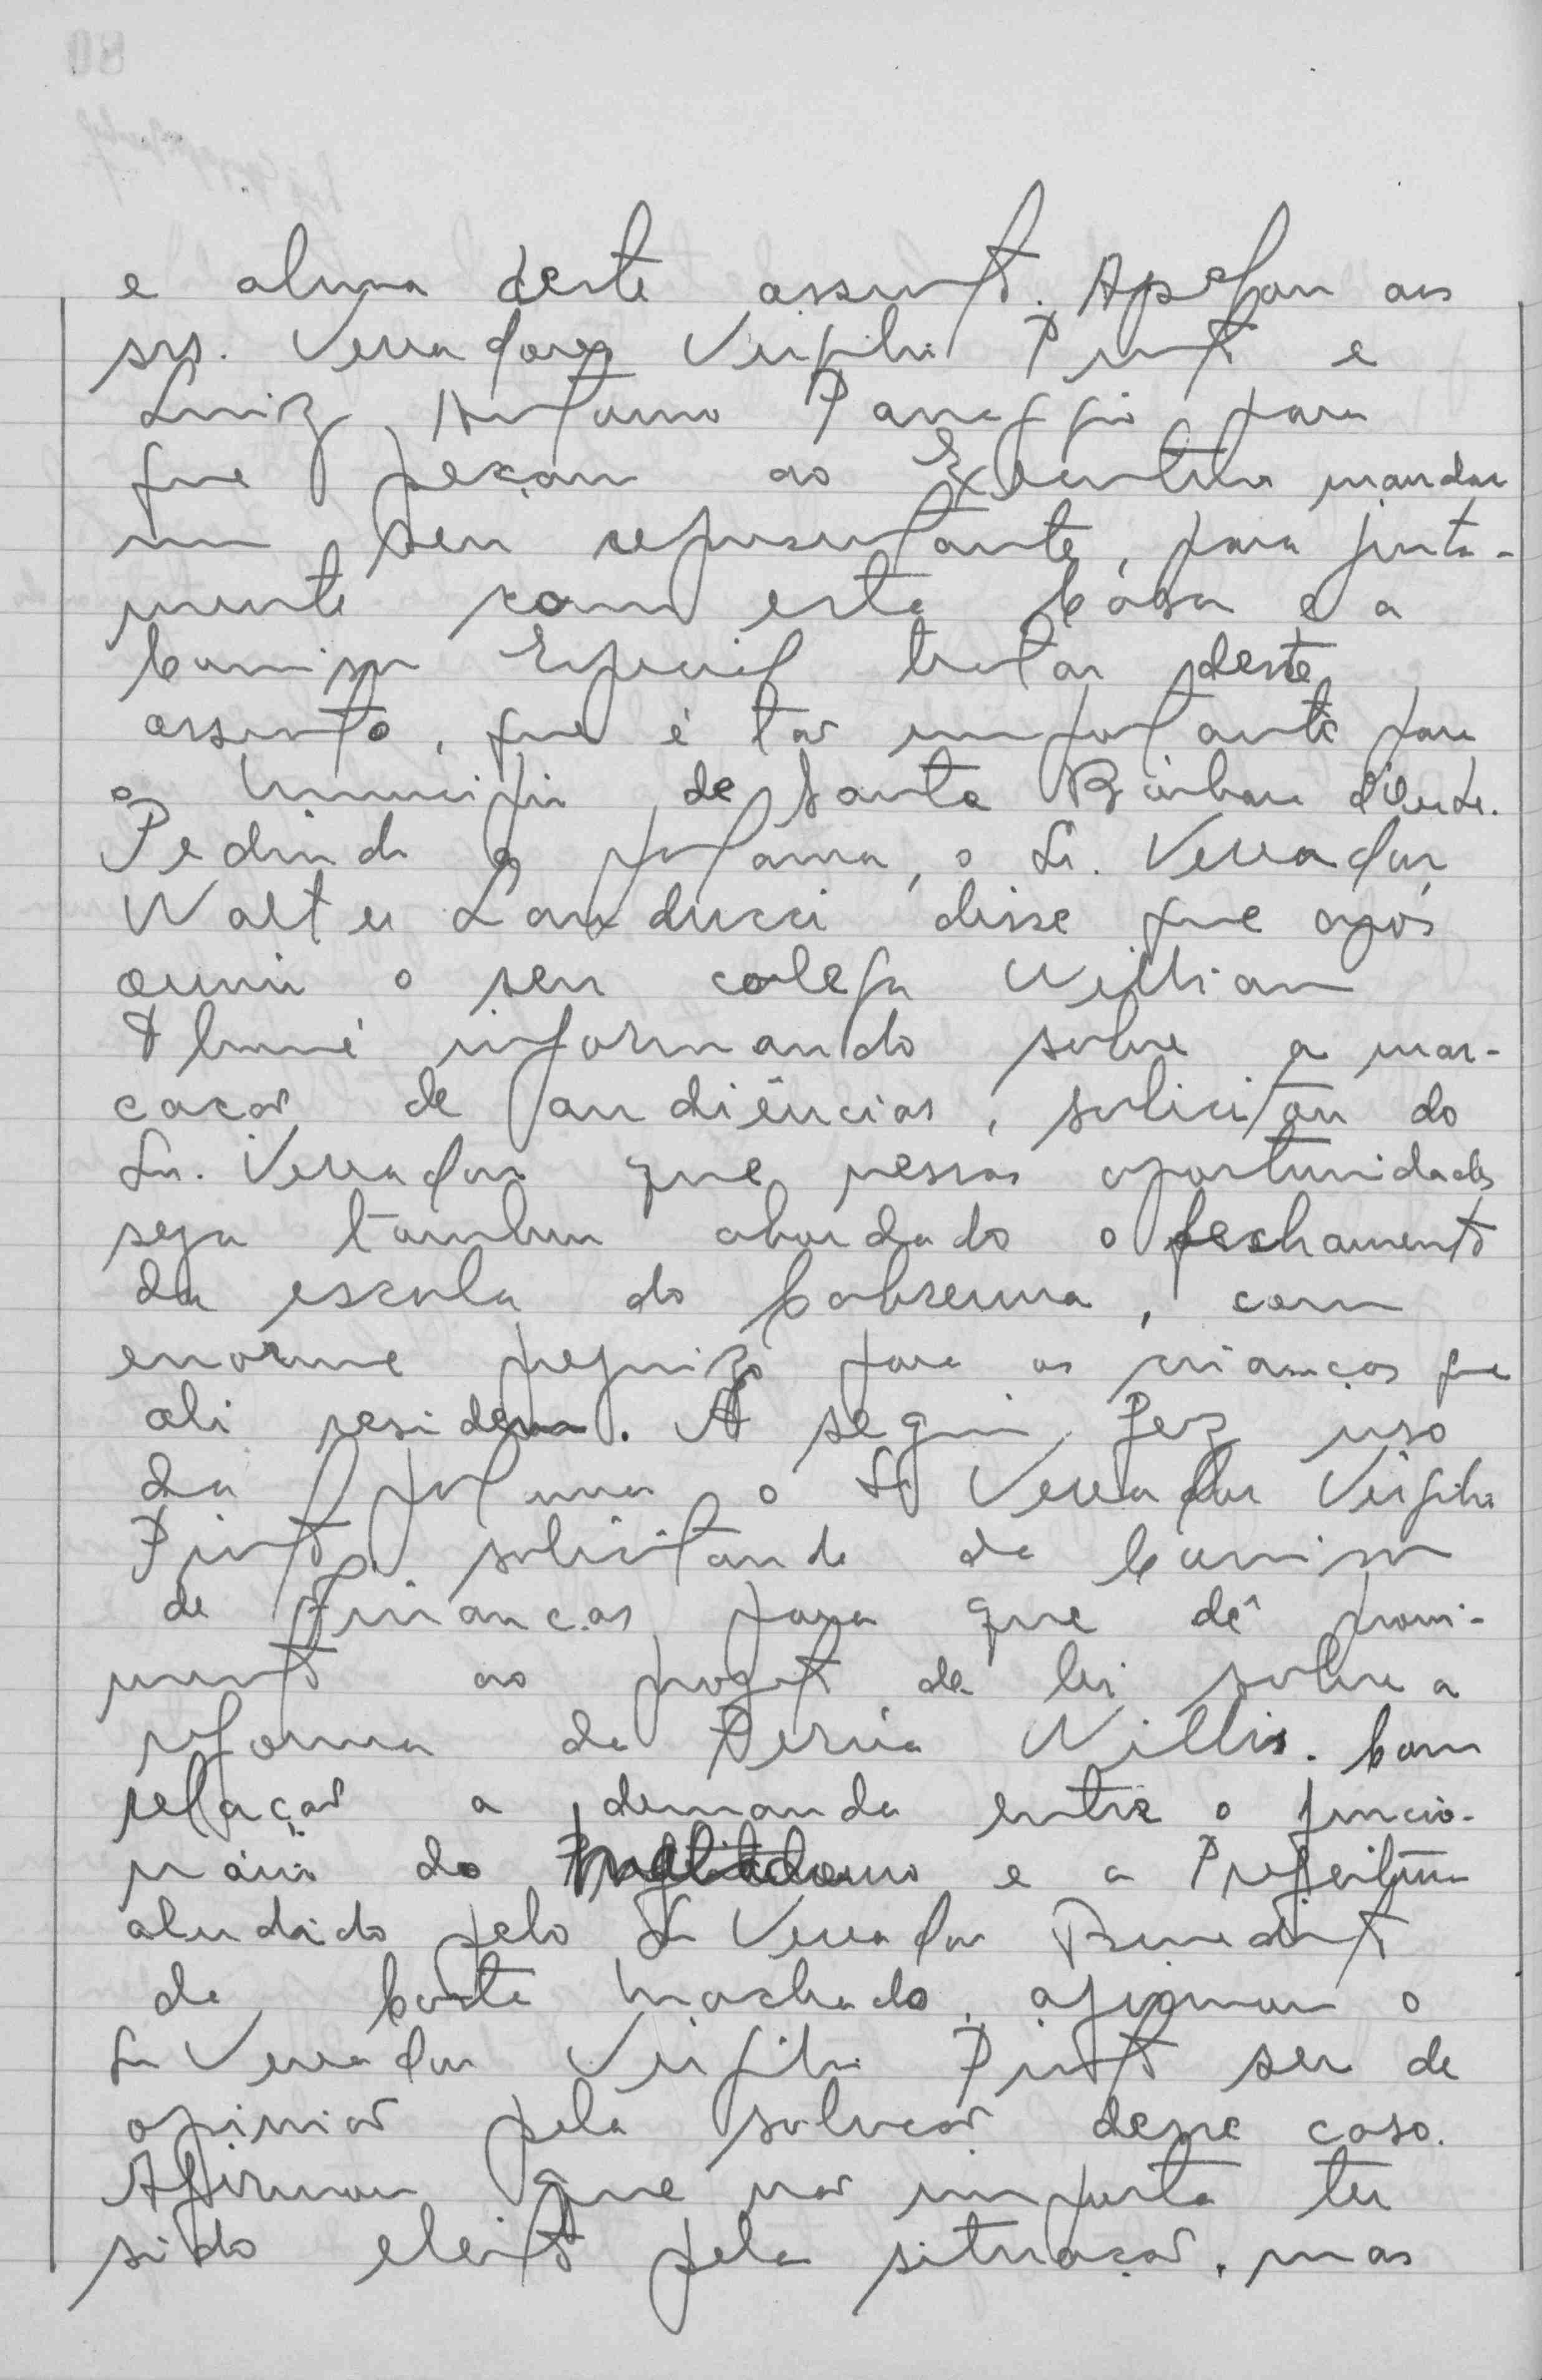 e alma deste assunto. Apelou aos
srs. Vereadores Virgilio Pinto e
Luiz Antonio Panaggio para
que peçam ao Executivo mandar
um seu representante, para junta-
mente com esta Casa e a
Comissão Especial tratar deste
assunto, que é tão importante para
o Município de Santa Bárbara d'Oeste.
Pedindo a palavra, o Sr. Vereador
Walter Landucci disse que após
ouvir o seu colega Willian
informando sobre a mar-
cação de audiências, solicitou do
Sr. Vereador que nessas oportunidades
seja tambem abordado o fechamento
da escola do Cabreuva, com
enorme prejuizo para as crianças que
ali residem. A seguir fez uso
da palavra o Sr Vereador Virgilio
Pinto, solicitando da Comissão
de Finanças para que dê provi-
mento ao projeto de lei sobre a
reforma da Persia Willis. Com
relação a demanda entre o funcio-
nário do e a Prefeitura
aludido pelo Sr Vereador Benedito
da Costa Machado, afirmou o
Sr Vereador Virgilio Pinto ser de
opinião pela solução desse caso.
Afirmou que não importa ter
sido eleito pela situação, mas